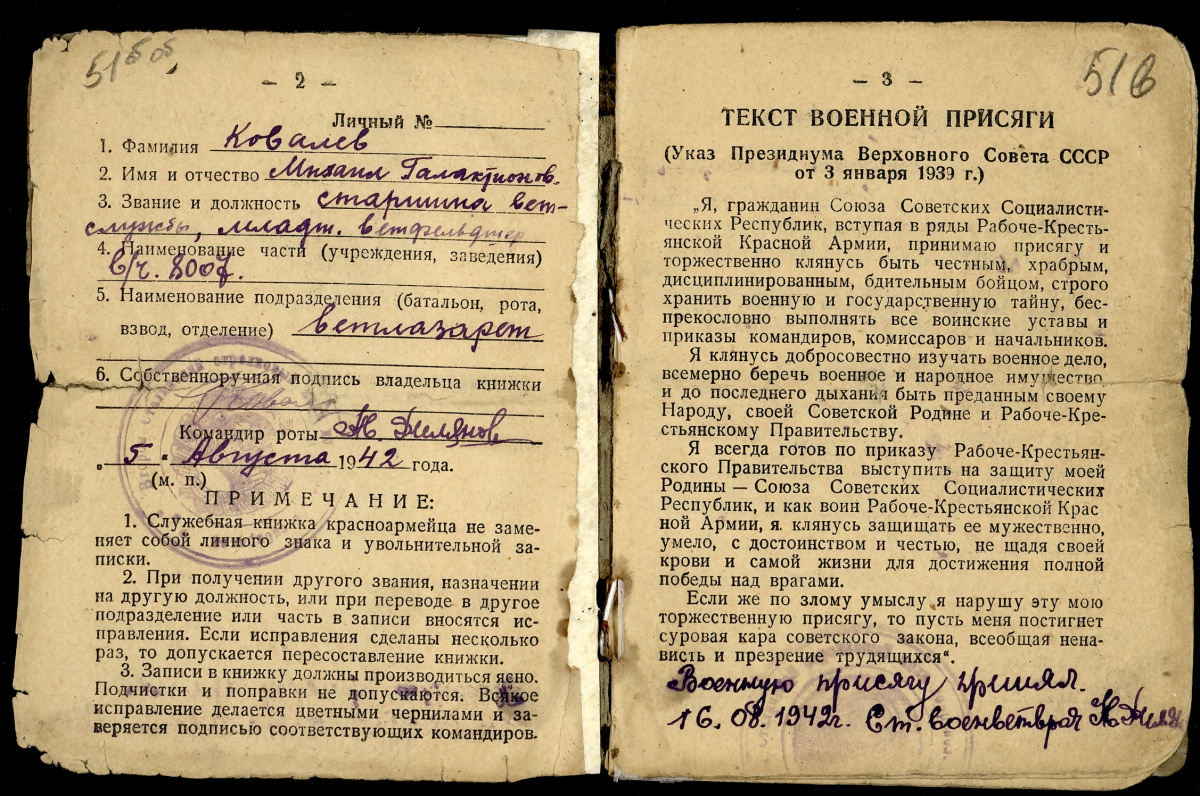 51
– 2 –
Личный №
1. Фамилия Ковалев
2. Имя и отчество Михаил Галактионов.
3. Звание и должность старшина вет-
службы, младш. ветфельдшер
4. Наименование части (учреждения, заведения)
в/ч. 8007.
5. Наименование подразделения (батальон, рота,
взвод, отделение) ветлазарет
6. Собственноручная подпись владельца книжки
Командир роты
„ 5 “ Августа 1942 года.
(м. п.)
ПРИМЕЧАНИЕ:
1. Служебная книжка красноармейца не заме-
няет собой личного знака и увольнительной за-
писки.
2. При получении другого звания, назначении
на другую должность, или при переводе в другое
подразделение или часть в записи вносятся ис-
правления. Если исправления сделаны несколько
раз, то допускается пересоставление книжки.
3. Записи в книжку должны производиться ясно.
Подчистки и поправки не допускаются. Всякое
исправление делается цветными чернилами и за-
веряется подписью соответствующих командиров.
51б
– 3 –
ТЕКСТ ВОЕННОЙ ПРИСЯГИ
(Указ Президиума Верховного Совета СССР
от 3 января 1939 г.)
„Я, гражданин Союза Советских Социалисти-
ческих Республик, вступая в ряды Рабоче-Кресть-
янской Красной Армии, принимаю присягу и
торжественно клянусь быть честным, храбрым,
дисциплинированным, бдительным бойцом, строго
хранить военную и государственную тайну, бес-
прекословно выполнять все воинские уставы и
приказы командиров, комиссаров и начальников.
Я клянусь добросовестно изучать военное дело,
всемерно беречь военное и народное имущество
и до последнего дыхания быть преданным своему
Народу, своей Советской Родине и Рабоче-Кре-
стьянскому Правительству.
Я всегда готов по приказу Рабоче-Крестьян-
ского Правительства выступить на защиту моей
Родины — Союза Советских Социалистических
Республик, и как воин Рабоче-Крестьянской Крас
ной Армии, я клянусь защищать ее мужественно,
умело, с достоинством и честью, не щадя своей
крови и самой жизни для достижения полной
победы над врагами.
Если же по злому умыслу я нарушу эту мою
торжественную присягу, то пусть меня постигнет
суровая кара советского закона, всеобщая нена-
висть и презрение трудящихся“.
Военную присягу принял.
16.08.1942г. Ст. военветврач